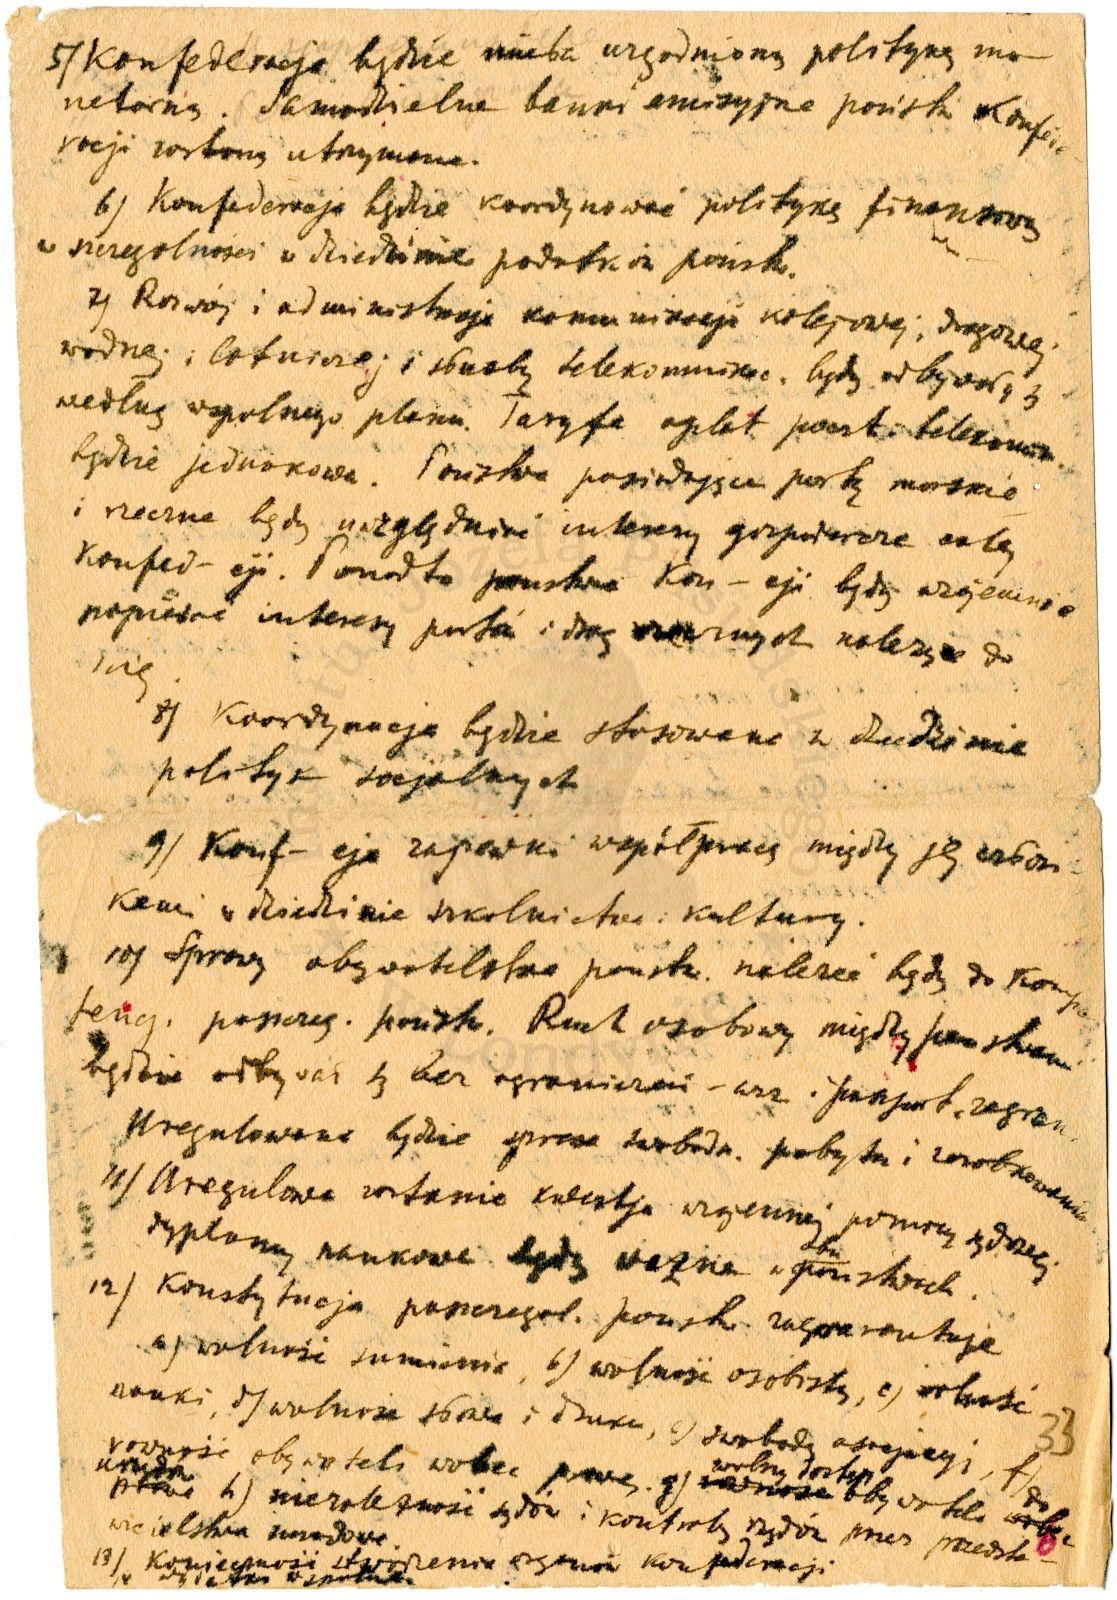 5) Konfederacja będzie miała uzgodnioną politykę mo-
netarną. Samodzielne banki emisyjne państw Konfede-
racji zostaną utrzymane.
6) Konfederacja będzie koordynować politykę finansową
w szczególności w dziedzinie podatków państw.
7) Rozwój i administracja komunikacji kolejowej, drogowej
wodnej i lotniczej i służby telekomunikac. będą odbywać się
według wspólnego planu. Taryfa opłat poczt. i telekomun.
będzie jednakowa. Państwa posiadające porty morskie
i rzeczne będą uwzględniać interesy gospodarcze całej
Konfed-cji. Ponadto państwa Kon-cji będą wzajemnie
popierać interesy portów i dróg wodnych należące do
niej.
8) Koordynacja będzie stosowana w dziedzinie
polityk socjalnych
9) Konf-cja zapewni współpracę między jej człon-
kami w dziedzinie szkolnictwa i kultury.
10) Sprawy obywatelstwa państw. należeć będą do kompe-
tencj. poszczeg. państw. Ruch osobowy między państwami
będzie odbywać się bez ograniczeń - wiz i paszport. zagran.
Uregulowana będzie sprawa swobodn. pobytu i zarobkowania
11) Uregulowa zostanie kwestja wzajemnej pomocy sądowej
dyplomy naukowe będą ważne w obu państwach.
12) Konstytucja poszczegól. państw zagwarantuje
a) wolność sumienia, b) wolność osobistą, c) wolność
nauki, d) wolność słowa i druku, e) swobodę asocjacji, f)
równość obywateli wobec prawa, g) wolny dostęp obywateli do
urzędów h) niezależność sądów i kontrolę rządów przez przedsta-
wicielstwa narodowe.
13) Konieczność stworzenia organów konfederacji
33